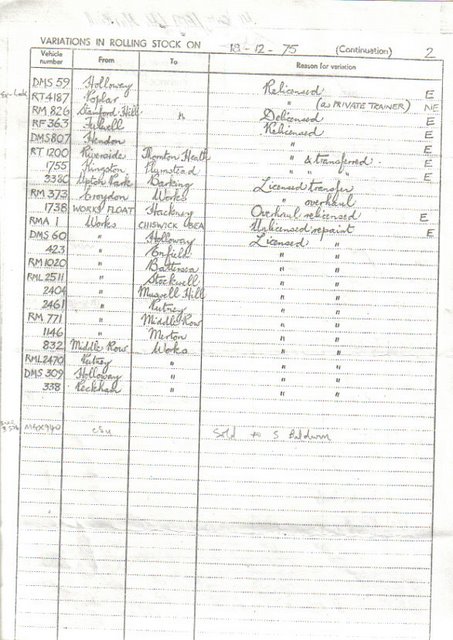 VARIATIONS IN ROLLING STOCK ON 18-12-75 (Continuation) 2
Vehicle number From To Reason for variation
DMS 59 Holloway Relicensed E
RT 4187 Poplar " (as PRIVATE TRAINER) NE
RM 826 Stamford Hill " Delicensed E
RF 363 Fulwell Relicensed E
DMS 807 Hendon " E
RT 1200 Riverside Thornton Heath " & transferred - E
1755 Kingston Plumstead " " E
3380 Upton Park Barking Licensed transfer
RM 373 Croydon Works " overhaul
1738 WORKS FLOAT Hackney Overhaul relicensed E
RMA 1 Works CHISWICK Unlicensed repaint E
DMS 60 " Holloway Licensed "
423 " Enfield " "
RM 1020 " Battersea " "
RML 2511 " Stockwell " "
2404 " Muswell Hill " "
2461 " Putney " "
RM 771 " Middle Row " "
1146 " Merton " "
832 Middle Row Works " "
RML 2470 Putney " " "
DMS 309 Holloway " " "
338 Peckham " " "
Sold to S Baldwin